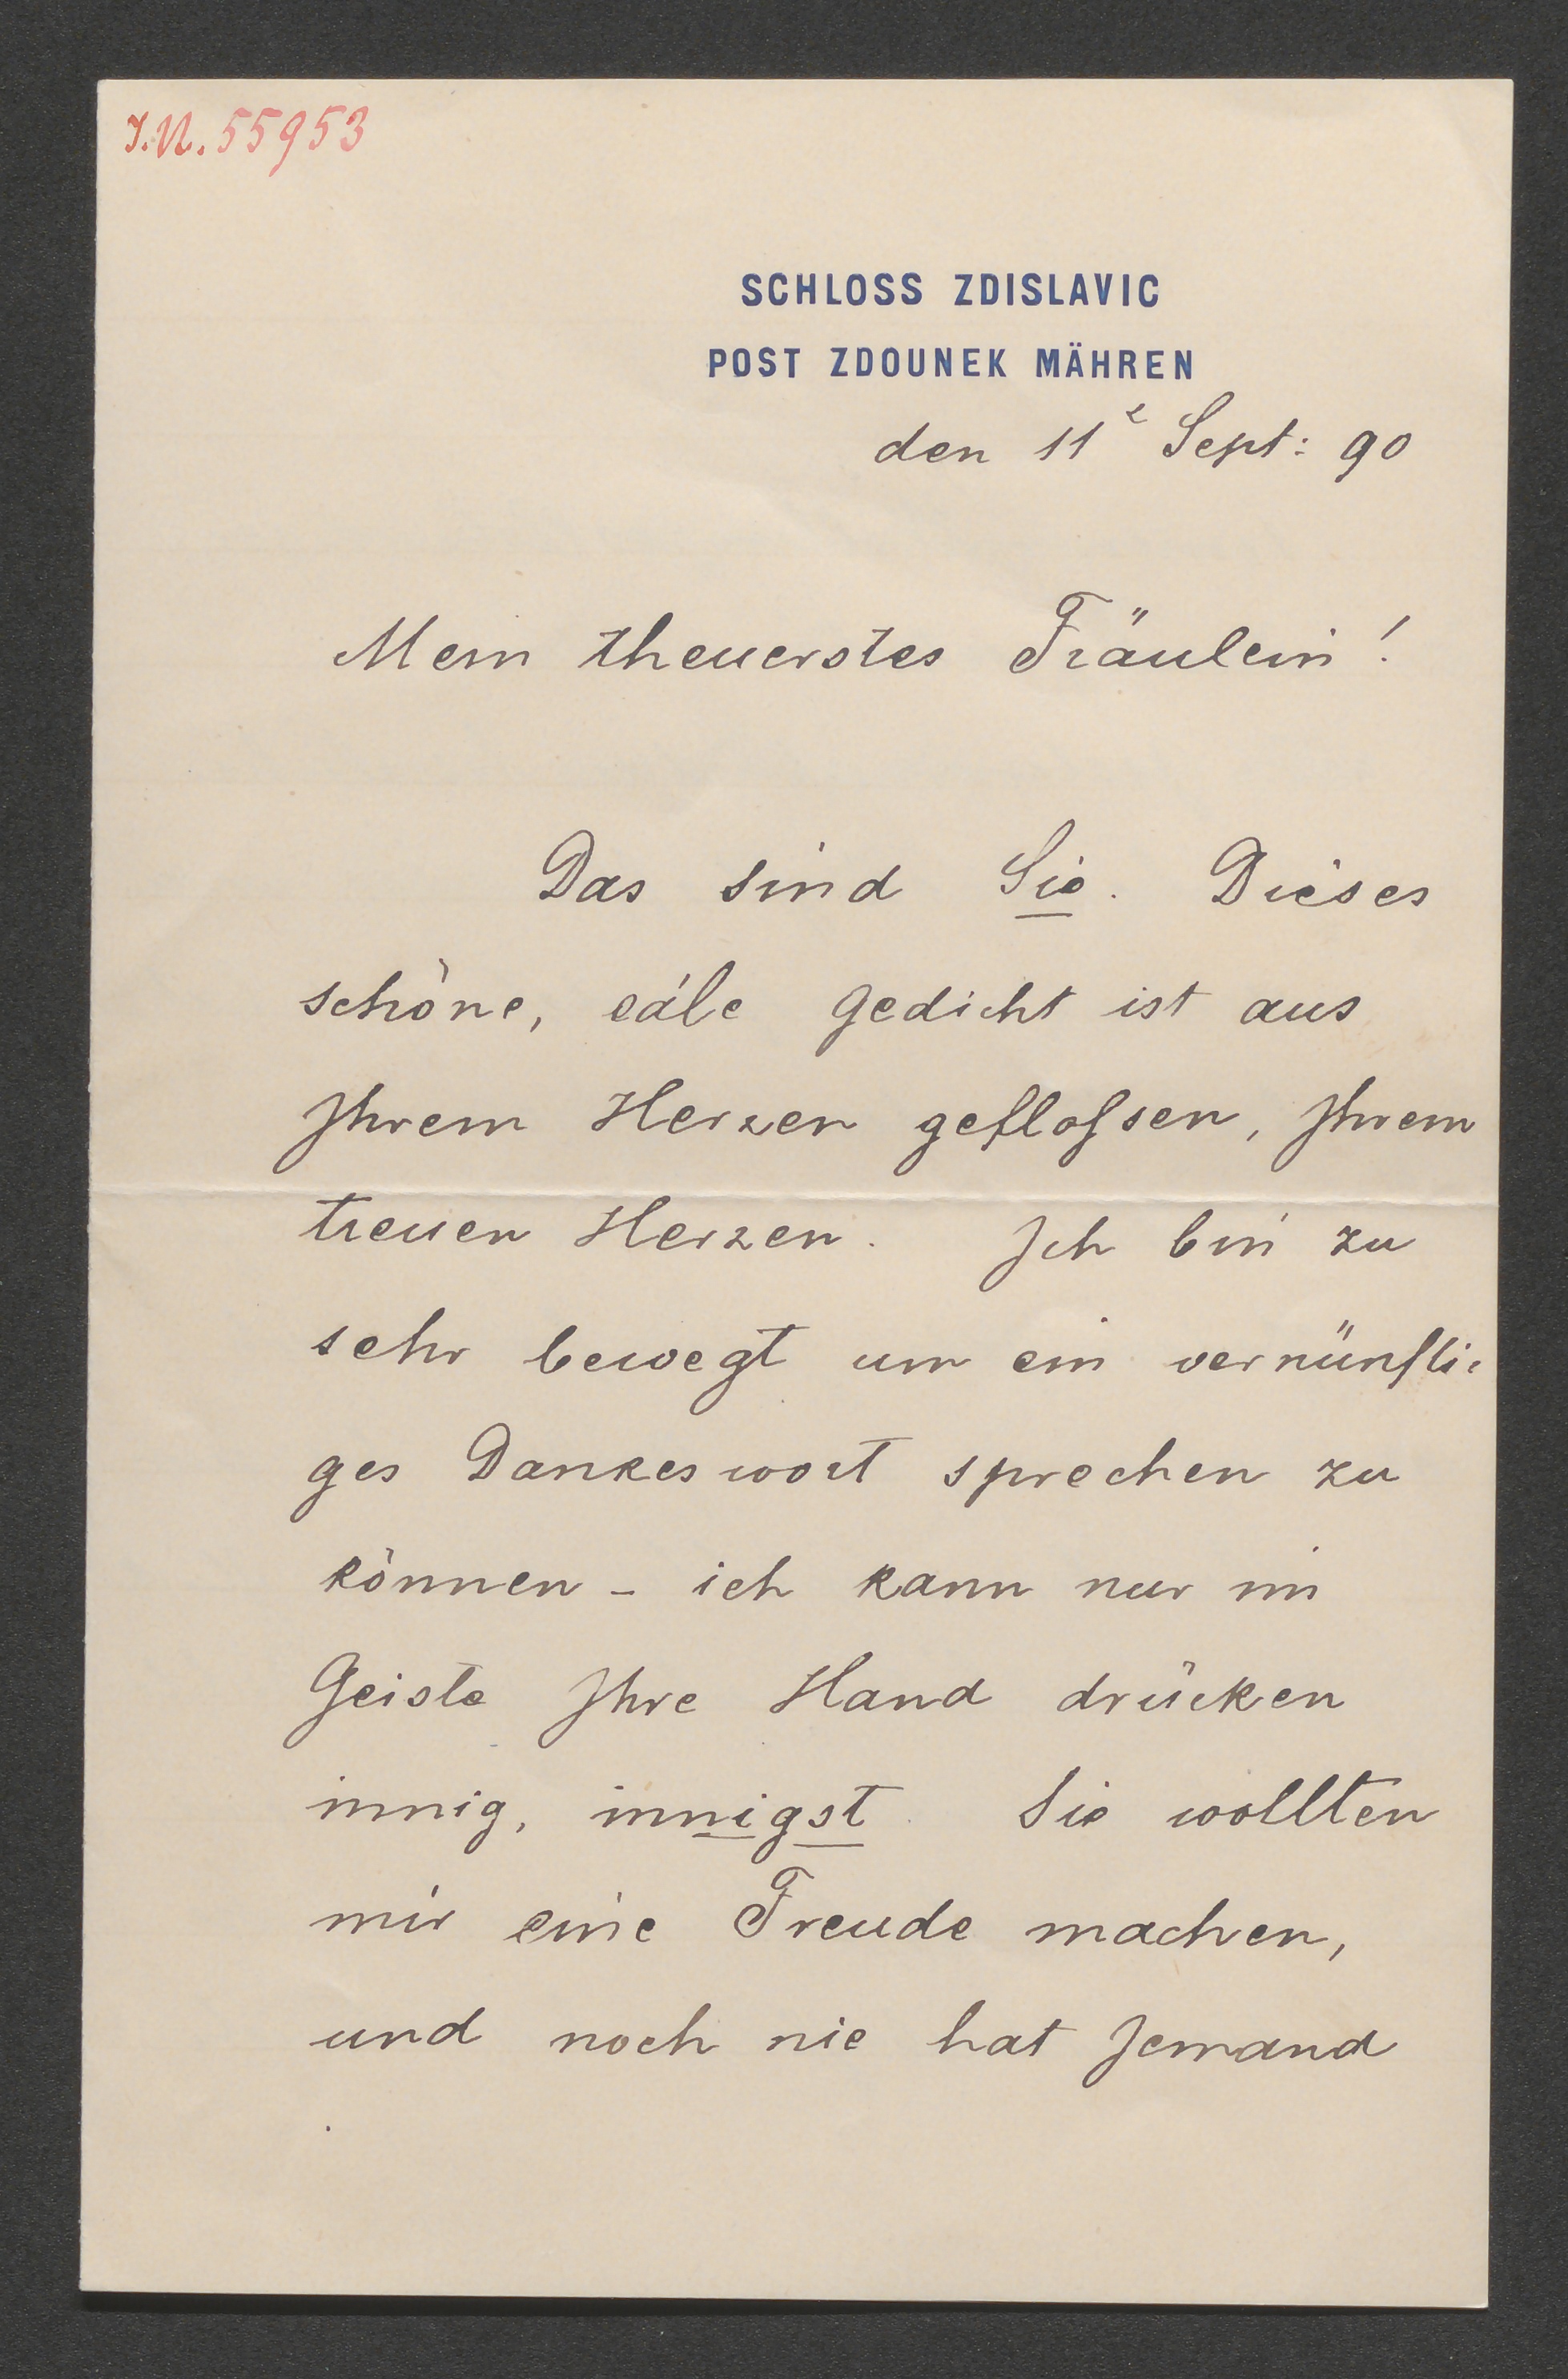 I.N. 55953
SCHLOSS ZDISLAVIC
POST ZDOUNEK MÄHREN
den 11t Sept: 90
Mein theuerstes Fräulein!
Das sind Sie. Dieses
schöne, edle Gedicht ist aus
Ihrem Herzen geflossen, Ihrem
treuen Herzen. Ich bin zu
sehr bewegt um ein vernünfti-
ges Dankeswort sprechen zu
können – ich kann nur im
Geiste Ihre Hand drücken
innig, innigst. Sie wollten
mir eine Freude machen,
und noch nie hat Jemand